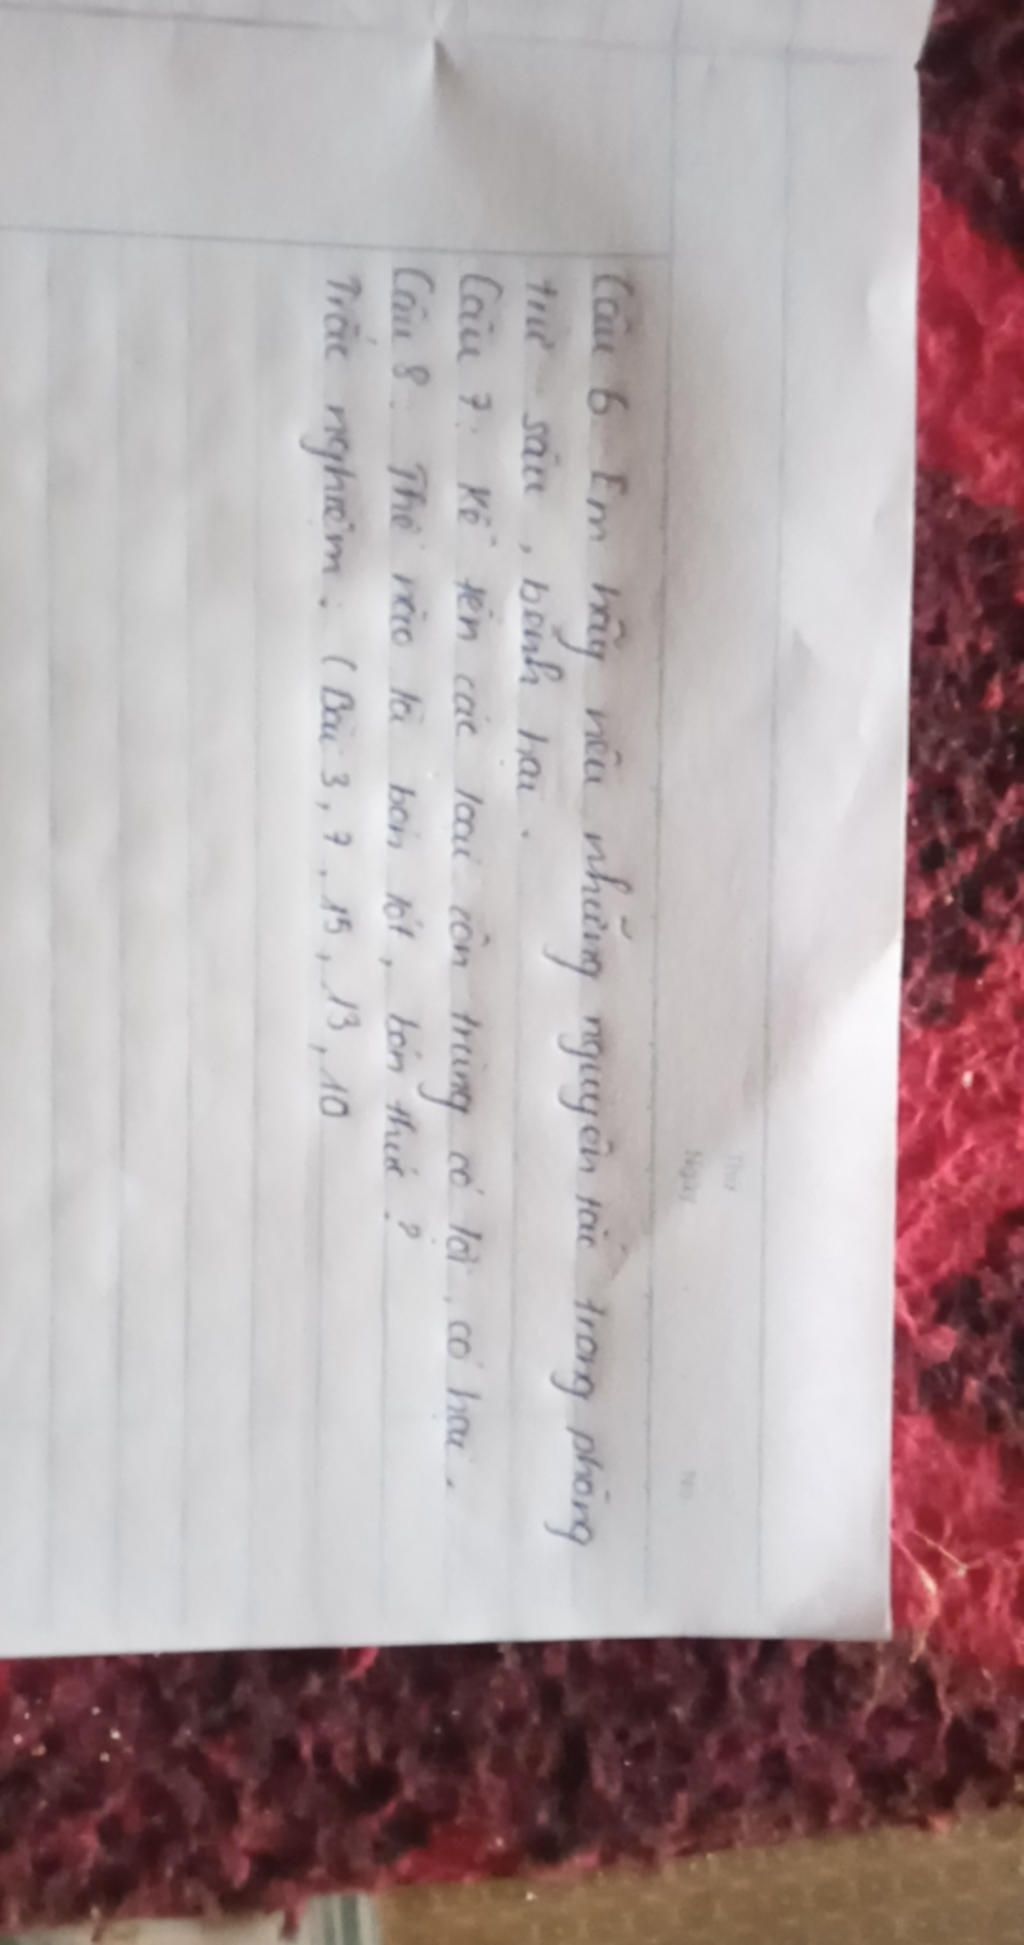 Thứ
Ngày No.
Câu 6 Em hãy nêu những nguyên tắc trong phòng
trừ sâu, bệnh hại.
Câu 7. Kể tên các loại côn trùng có lợi, có hại.
Câu 8. Thế nào là bón lót, bón thúc?
Trắc nghiệm: (Bài 3, 7, 15, 13, 10